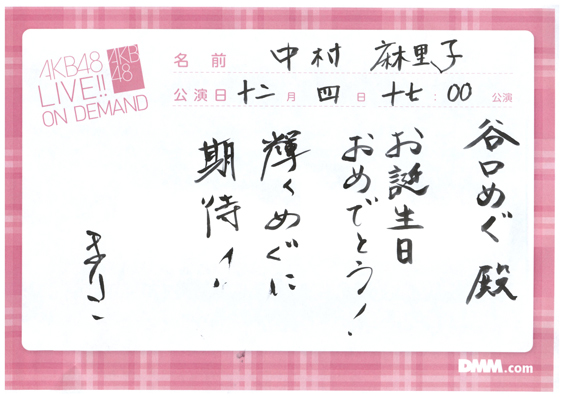 AKB48
LIVE!!
ON DEMAND
AKB
48
名前 中村 麻里子
公演日 十二月 四日 十七:00 公演
谷口めぐ 殿
お誕生日
おめでとう!
輝くめぐに
期待!!
まりこ
DMM.com